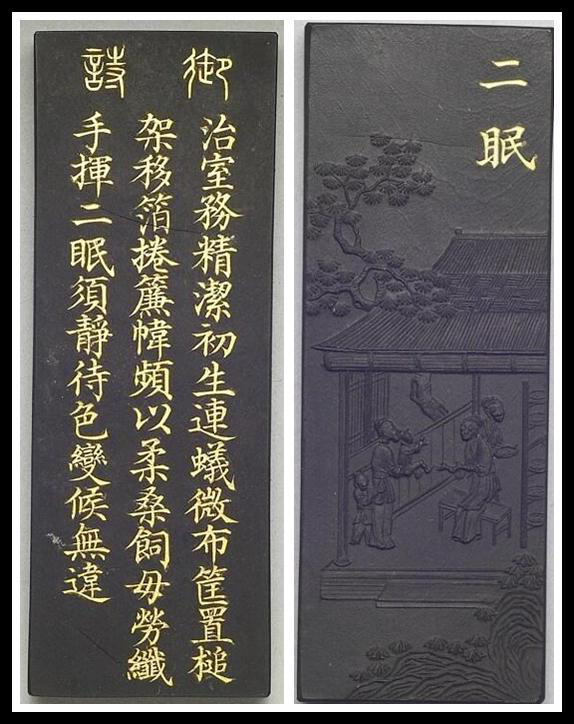 二眠
御詩
治室務精潔初生連蟻微布筐置槌
架移箔捲簾幃頻以柔桑飼毋勞纖
手揮二眠須靜待色變候無違